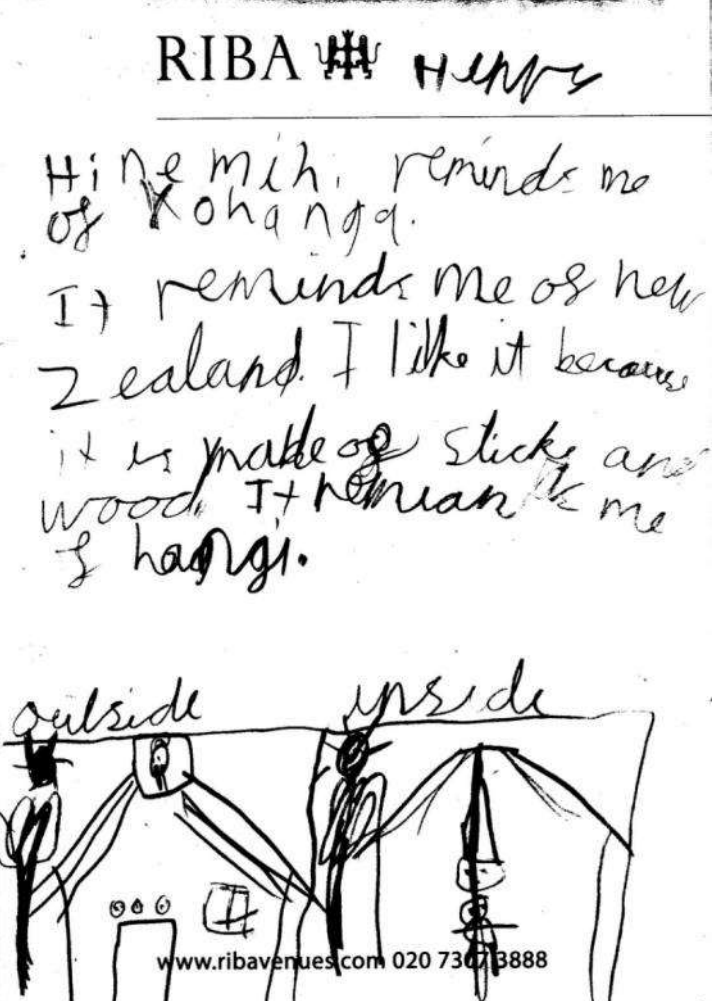 RIBA Henry
Hinemih. reminds me
of Kohanga.
It reminds me of new
Zealand. I like it because
it is made of sticks and
wood. It me
of hangi.
outside inside
www.ribavenues.com 020 7307 3888